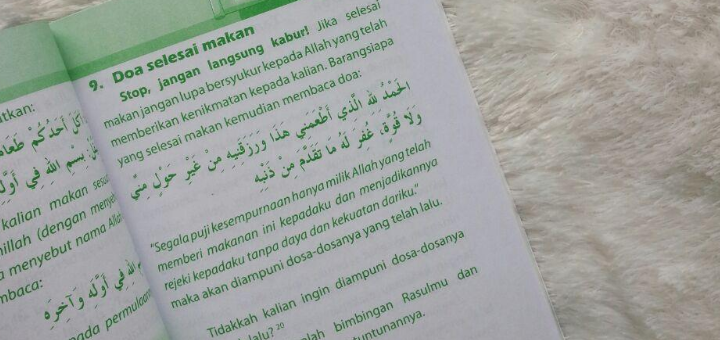 atkan:
kalian makan
illah (dengan
menyebut nama
mbaca:
pada permulaan
9. Doa selesai makan
Stop, jangan langsung kabur! Jika selesai
makan jangan lupa bersyukur kepada Allah yang telah
memberikan kenikmatan kepada kalian. Barangsiapa
yang selesai makan kemudian membaca doa:
الْحَمْدُ لِلهِ الَّذِي أَطْعَمَنِي هَذَا وَرَزَقَنِيهِ مِنْ غَيْرِ حَوْلٍ مِنِّي
وَلَا قُوَّةٍ، غُفِرَ لَهُ مَا تَقَدَّمَ مِنْ ذَنْبِهِ
"Segala puji kesempurnaan hanya milik Allah yang telah
memberi makanan ini kepadaku dan menjadikannya
rejeki kepadaku tanpa daya dan kekuatan dariku."
maka akan diampuni dosa-dosanya yang telah lalu.
Tidakkah kalian ingin diampuni dosa-dosanya
lalu? 20
bimbingan Rasulmu dan
tuntunannya.